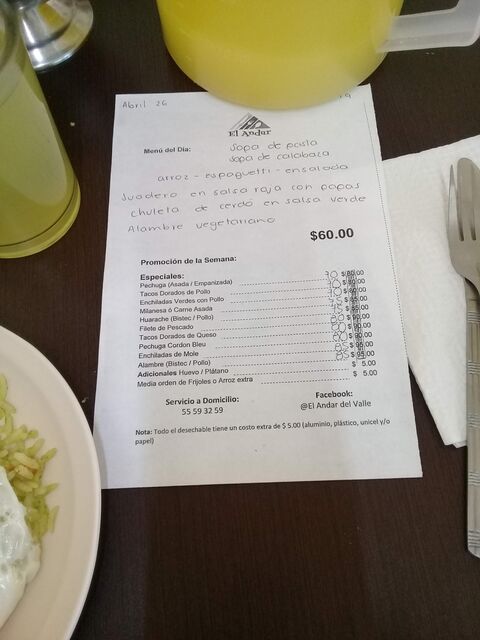 Abril 26
El Andar
Menú del Dia: Sopa de pasta
sopa de calabaza
arroz - espaguetti - ensalada
Suadero en salsa roja con papas
chuleta de cerdo en salsa verde
Alambre vegetariano
$60.00
Promoción de la Semana:
Especiales:
Pechuga (Asada / Empanizada)
Tacos Dorados de Pollo
Enchiladas Verdes con Pollo
Milanesa ó Carne Asada
Huarache (Bistec / Pollo)
Filete de Pescado
Tacos Dorados de Queso
Pechuga Cordon Bleu
Enchiladas de Mole
Alambre (Bistec / Pollo)
Adicionales Huevo / Plátano $ 5.00
Media orden de Frijoles o Arroz extra $ 5.00
Servicio a Domicilio: Facebook:
55 59 32 59 @El Andar del Valle
Nota: Todo el desechable tiene un costo extra de $ 5.00 (aluminio, plástico, unicel y/o
papel)